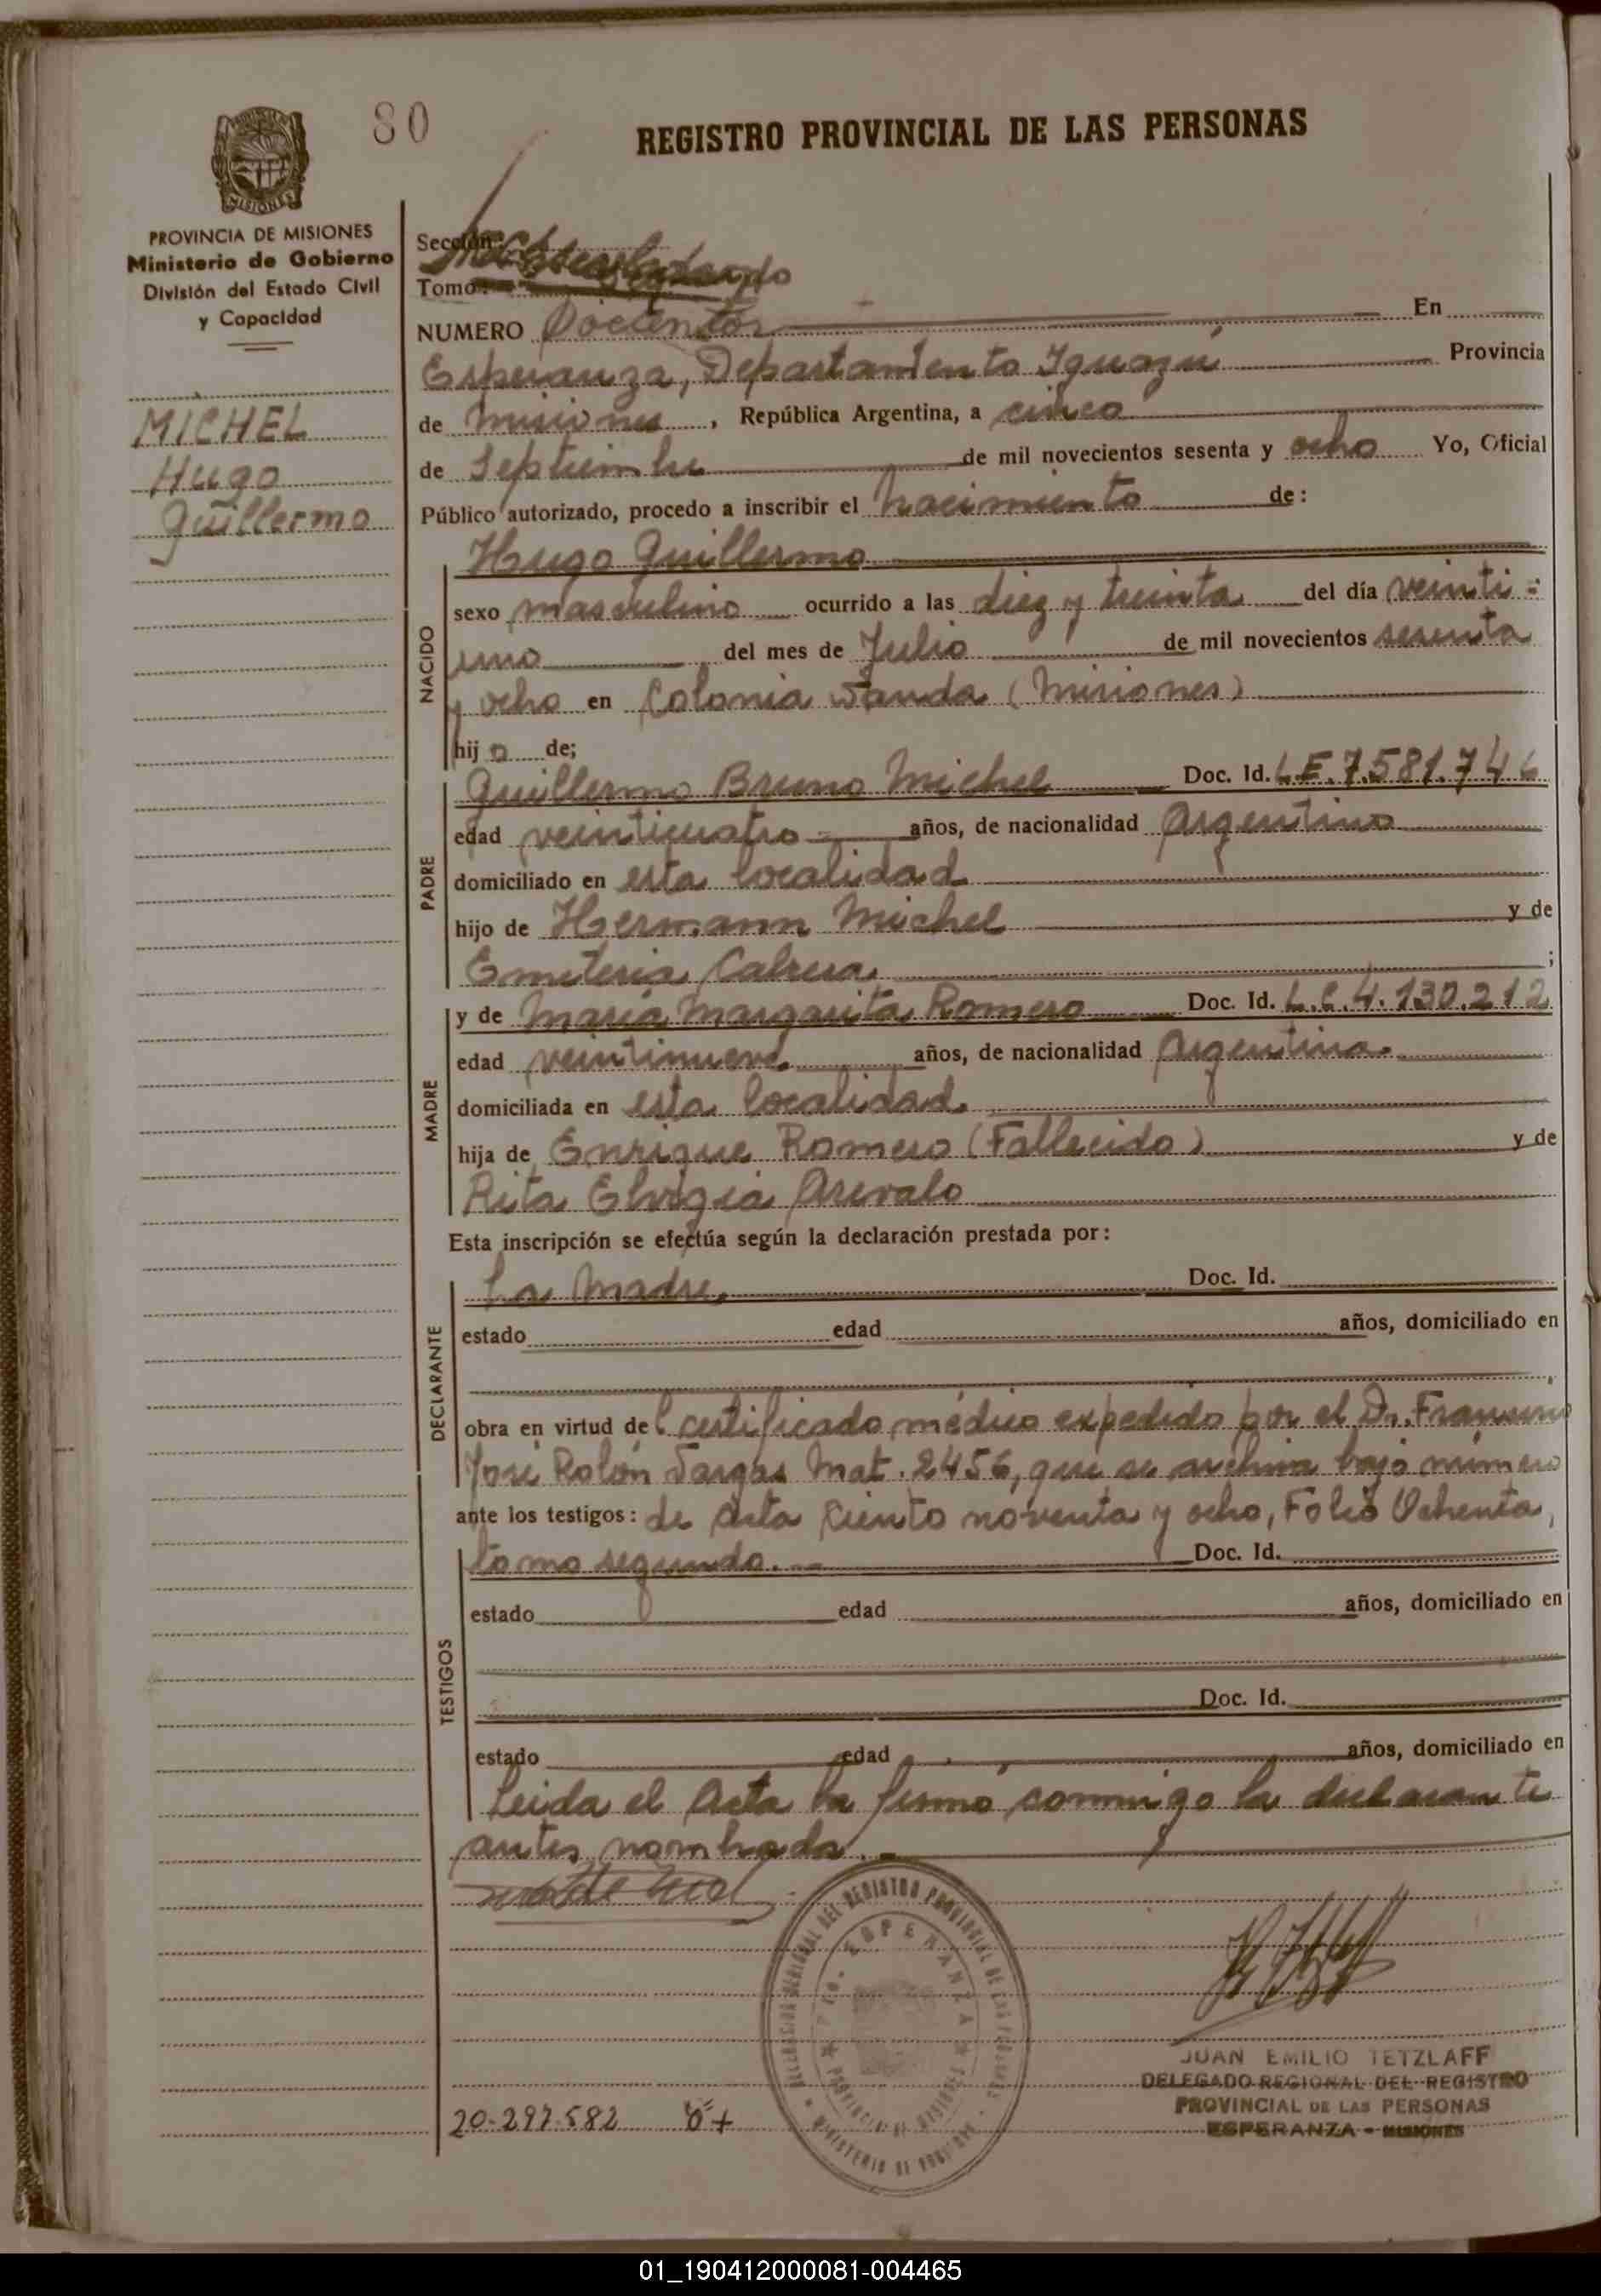 80
REGISTRO PROVINCIAL DE LAS PERSONAS
MISIONES
PROVINCIA DE MISIONES
Ministerio de Gobierno
División del Estado Civil
y Capacidad
MICHEL
Hugo
Guillermo
Sección:
Tomo:
NUMERO En
Esperanza, Departamento Iguazú Provincia
de Misiones, República Argentina, a cinco
de Septiembre de mil novecientos sesenta y ocho Yo, Oficial
Público autorizado, procedo a inscribir el nacimiento de:
NACIDO
Hugo Guillermo
sexo masculino ocurrido a las diez y treinta del día veinti-
uno del mes de Julio de mil novecientos sesenta
y ocho en Colonia Wanda (Misiones)
hijo de;
PADRE
Guillermo Bruno Michel Doc. Id. L.E. 7.581.746
edad veinticuatro años, de nacionalidad Argentino
domiciliado en esta localidad
hijo de Hermann Michel y de
Emeteria Cabrera ;
MADRE
y de María Margarita Romero Doc. Id. L.C. 4.130.212
edad veintinueve años, de nacionalidad Argentina
domiciliada en esta localidad.
hija de Enrique Romero (Fallecido) y de
Rita Arevalo
Esta inscripción se efectúa según la declaración prestada por:
DECLARANTE
La Madre. Doc. Id.
estado edad años, domiciliado en
obra en virtud del certificado médico expedido por el Dr.
José Rolón Vargas Mat. 2456, que se archiva bajo número
ante los testigos: de Acta ciento noventa y ocho, Folio Ochenta,
TESTIGOS
tomo segundo. Doc. Id.
estado edad años, domiciliado en
Doc. Id.
estado edad años, domiciliado en
Leida el Acta la firmó conmigo la declarante
antes nombrada.
DELEGACION REGIONAL DEL REGISTRO PROVINCIAL DE LAS PERSONAS
ESPERANZA
PROVINCIA DE MISIONES
MINISTERIO DE GOBIERNO
JUAN EMILIO TETZLAFF
DELEGADO REGIONAL DEL REGISTRO
PROVINCIAL DE LAS PERSONAS
ESPERANZA - MISIONES
20.297.582
01_190412000081-004465